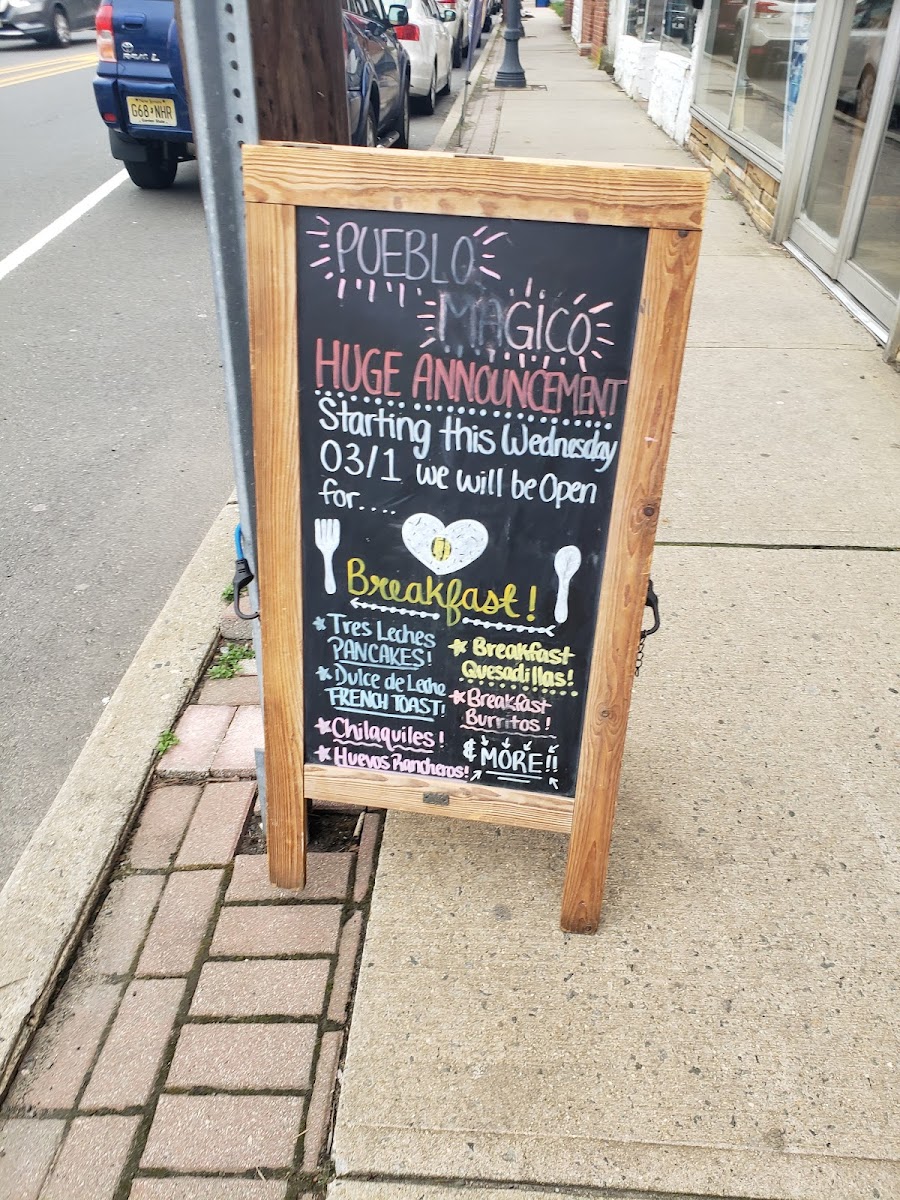 G68 NHR
PUEBLO
MAGICO
HUGE ANNOUNCEMENT
Starting this Wednesday
03/1 we will be Open
for....
Breakfast!
Tres Leches
PANCAKES!
Dulce de Leche
FRENCH TOAST!
Chilaquiles!
Huevos Rancheros!
Breakfast
Quesadillas!
Breakfast
Burritos!
& MORE!!